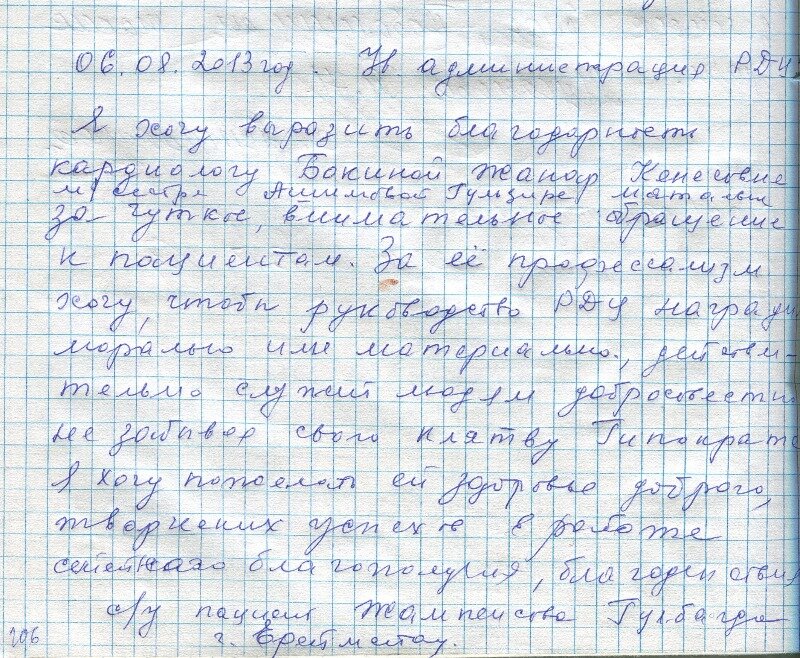 06.08.2013 год. Ув администрация РДЦ
Я хочу выразить благодарность
кардиологу Бакиной Жанар Кенесовне
м/сестре Ашимовой Гульзире
за чуткое, внимательное обращение
к пациентам. За её професализм
хочу, чтобы руководство РДЦ награди
морально или материально., действи-
тельно служит людям добросовестн
не забывая свого клятву Гипократ
Я хочу пожелать ей здоровье доброго,
творческих успехов в работе
семейного благополучия, благоденствия
с/у пациент Гулбагда
г. Ерейментау.
206